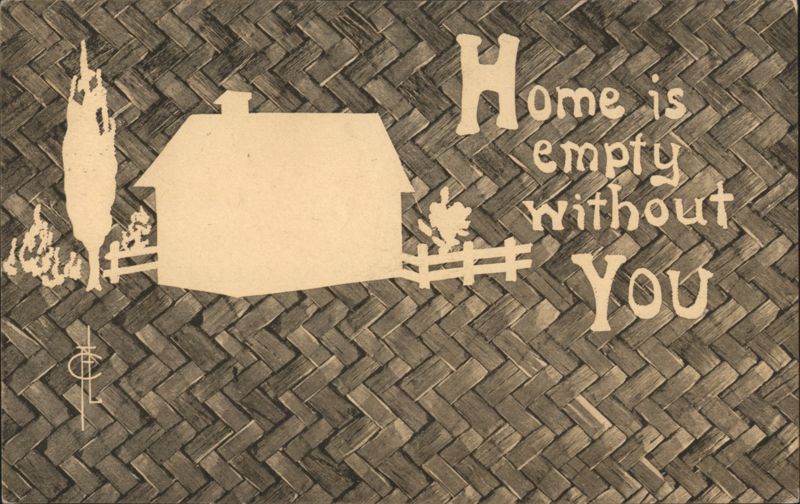 Home is
empty
without
You